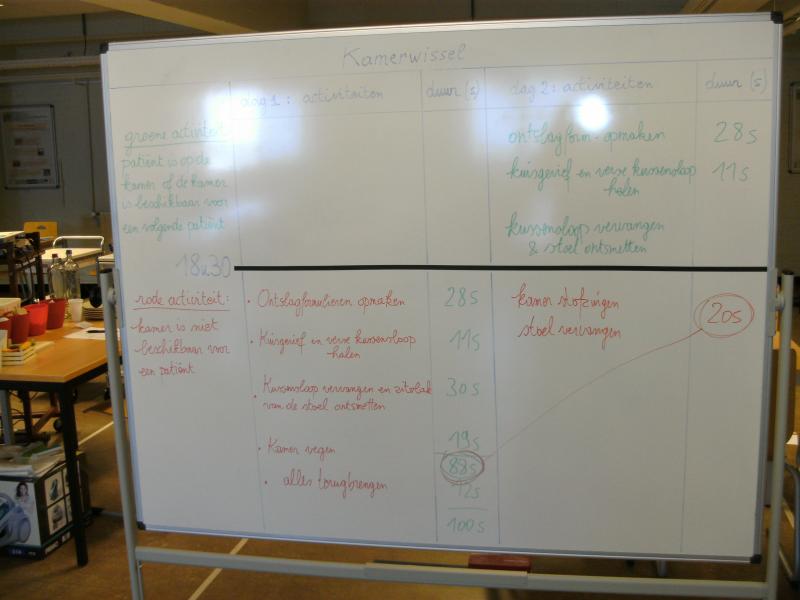 Kamerwissel
dag 1: activiteiten
duur (s)
dag 2: activiteiten
duur (s)
groene activiteit
patiënt is op de
kamer of de kamer
is beschikbaar voor
een volgende patiënt
ontslagform. opmaken
28s
kuisgerief en verse kussensloop
halen
11s
kussensloop vervangen
& stoel ontsmetten
18u30
rode activiteit:
kamer is niet
beschikbaar voor
een patiënt
• Ontslagformulieren opmaken
28s
• Kuisgerief en verse kussensloop
halen
11s
• Kussensloop vervangen en zitvlak
van de stoel ontsmetten
30s
• Kamer vegen
19s
88s
• alles terugbrengen
12s
100s
kamer stofzuigen
stoel vervangen
20s